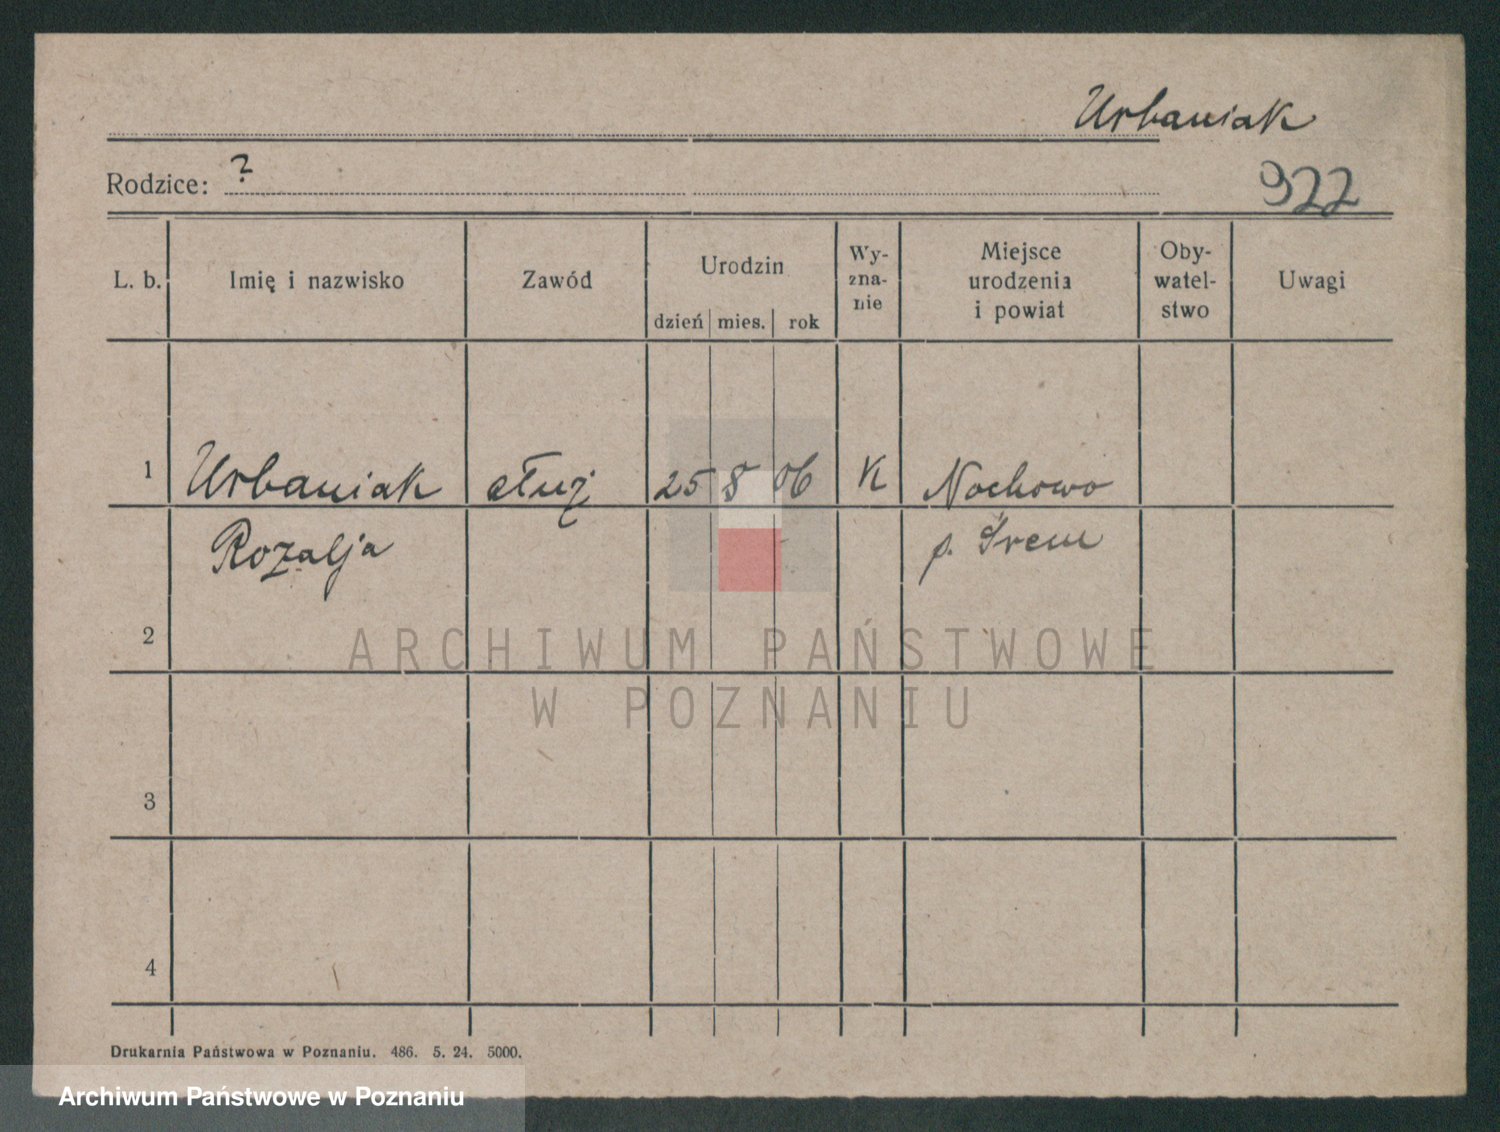 Urbaniak
Rodzice: ?
922
L. b. Imię i nazwisko Zawód Urodzin dzień mies. rok Wy-zna-nie Miejsce urodzenia i powiat Oby-watel-stwo Uwagi
1 Urbaniak służ 25 8 06 K Nochowo
Rozalja p. Śrem
2
3
4
Drukarnia Państwowa w Poznaniu. 486. 5. 24. 5000.
ARCHIWUM PAŃSTWOWE
W POZNANIU
Archiwum Państwowe w Poznaniu